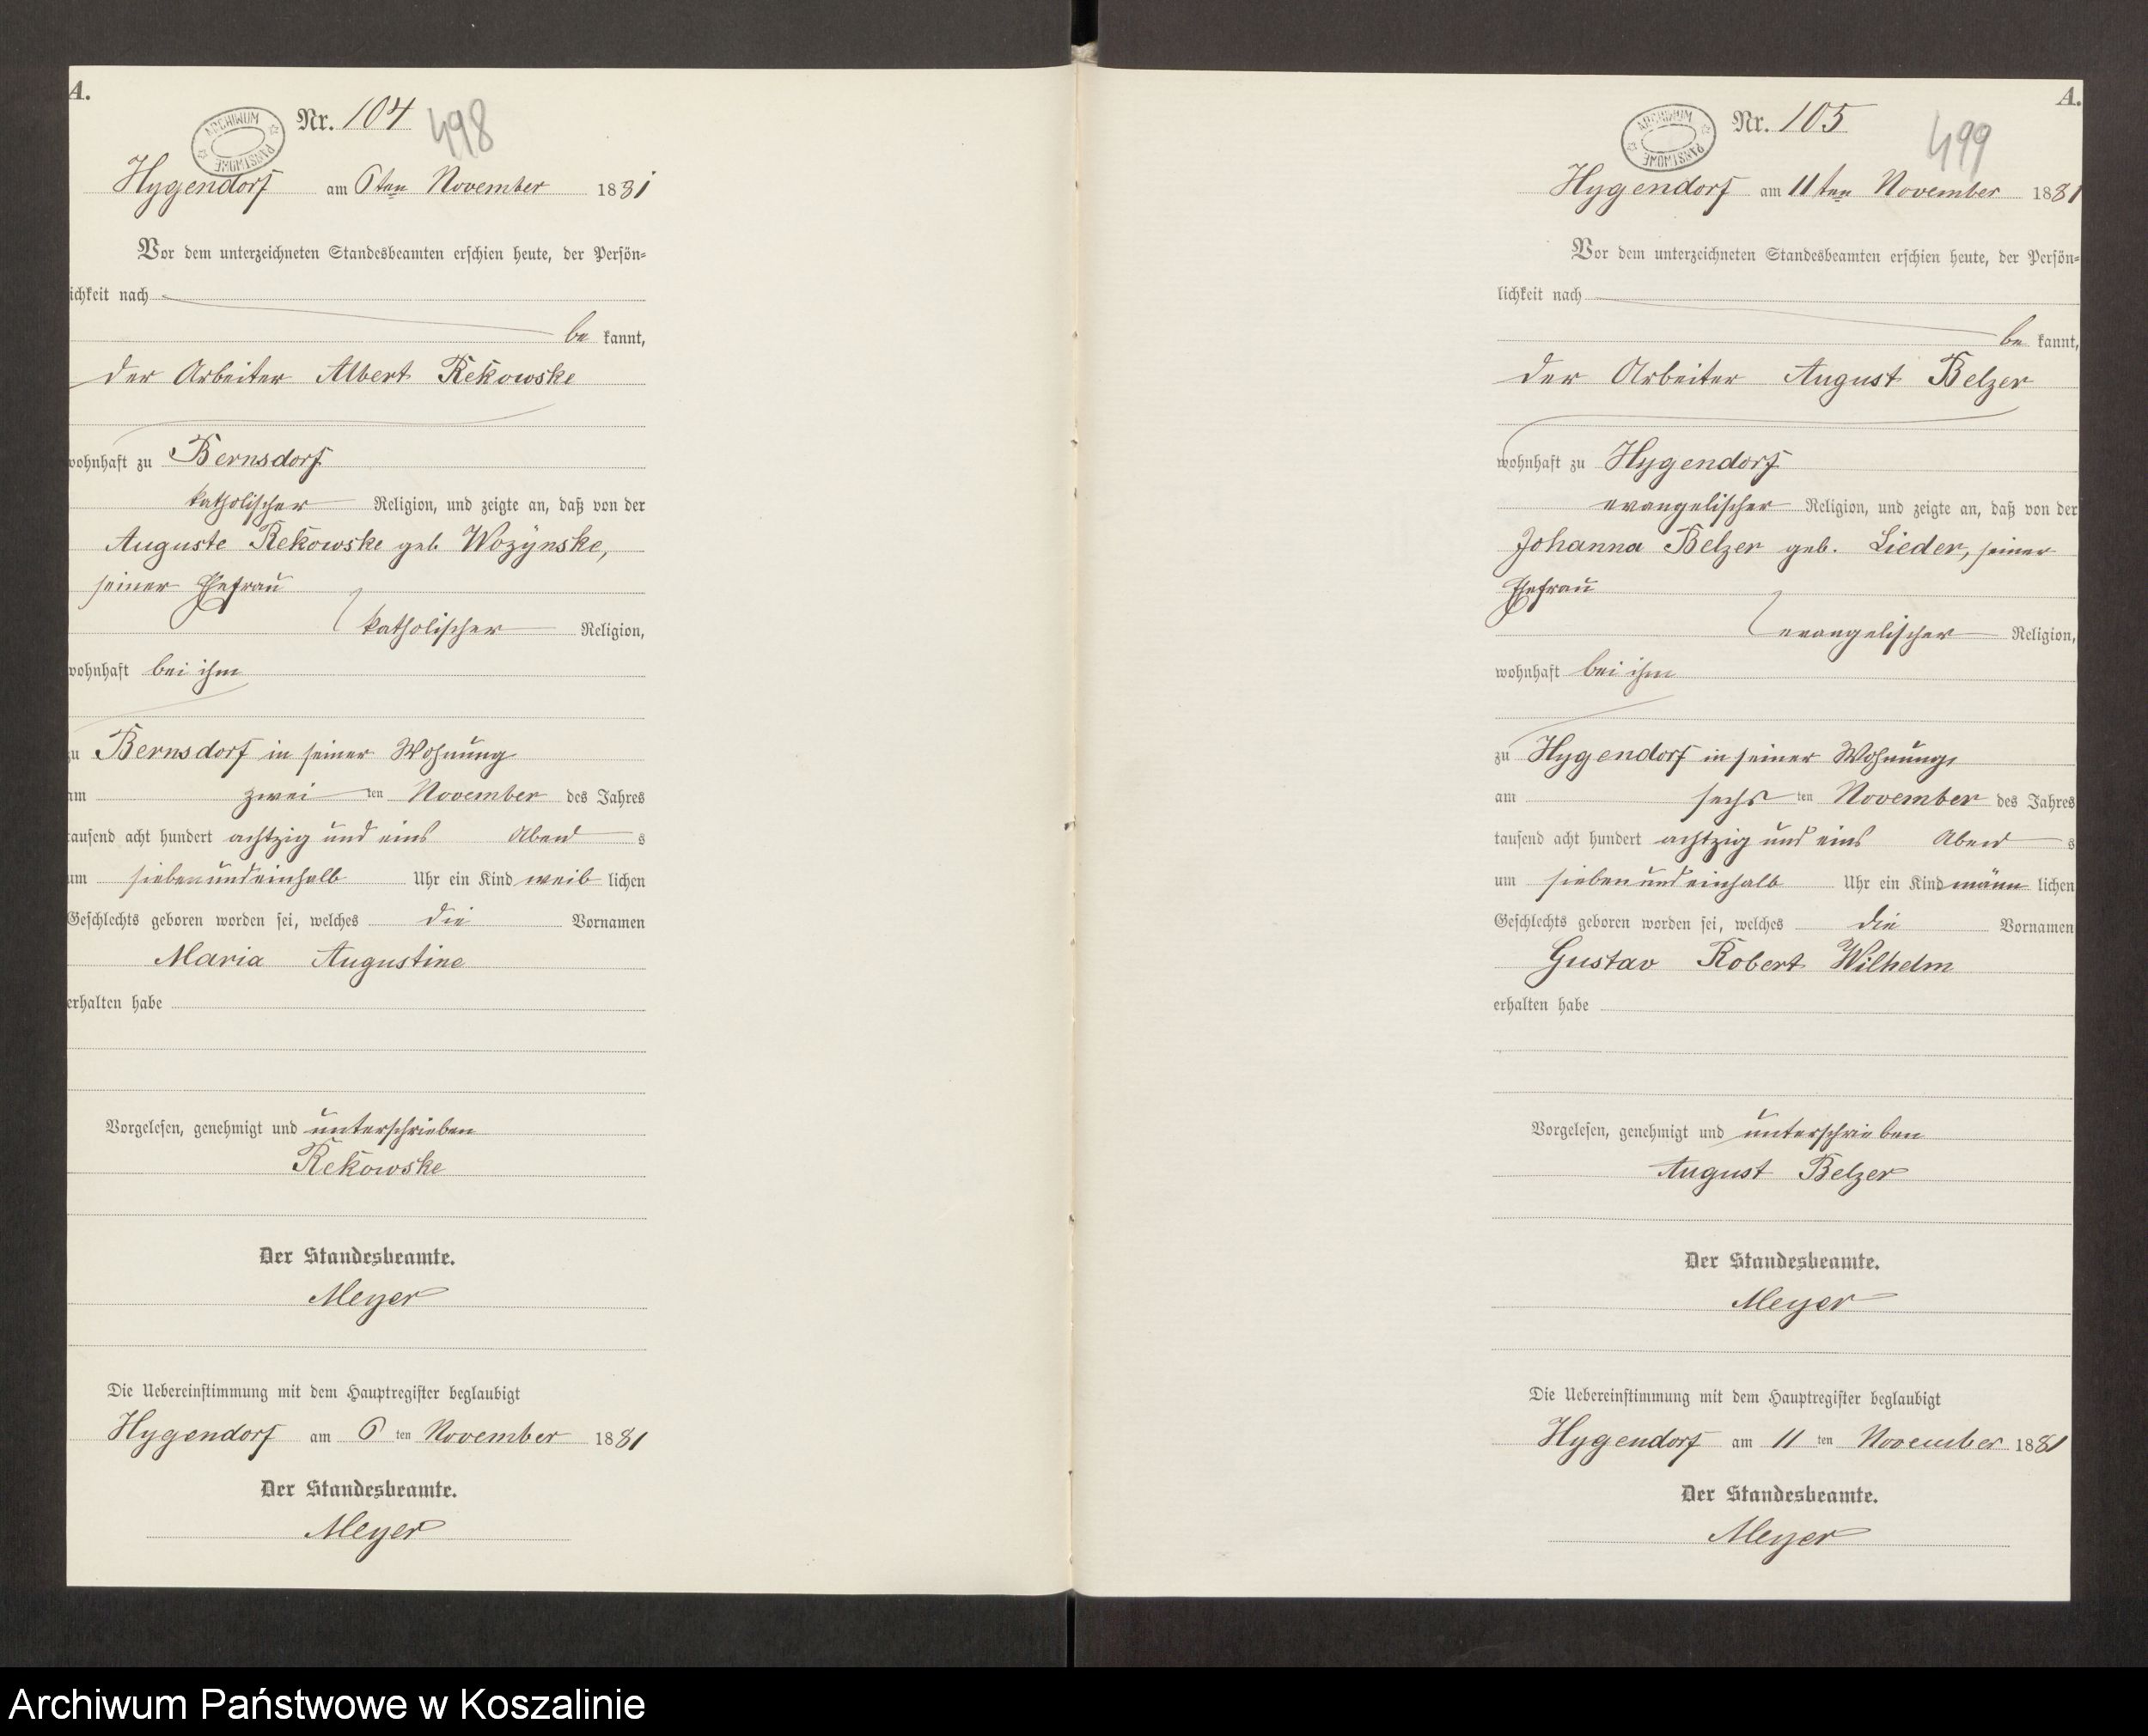 A.
Nr. 104
498
ARCHIWUM PAŃSTWOWE
Hygendorf am 6ten November 1881
Vor dem unterzeichneten Standesbeamten erschien heute, der Persön=
ichkeit nach
be kannt,
der Arbeiter Albert Rekowske
wohnhaft zu Bernsdorf
katholischer Religion, und zeigte an, daß von der
Auguste Rekowske geb. Wozÿnske,
seiner Ehefrau
katholischer Religion,
wohnhaft bei ihm
zu Bernsdorf in seiner Wohnung
am zwei ten November des Jahres
tausend acht hundert achtzig und eins Abend s
um siebenundeinhalb Uhr ein Kind weib lichen
Geschlechts geboren worden sei, welches die Vornamen
Maria Augustine
erhalten habe
Vorgelesen, genehmigt und unterschrieben
Rekowske
Der Standesbeamte.
Meyer
Die Uebereinstimmung mit dem Hauptregister beglaubigt
Hygendorf am 6 ten November 1881
Der Standesbeamte.
Meyer
A.
Nr. 105
499
ARCHIWUM PAŃSTWOWE
Hygendorf am 11ten November 1881
Vor dem unterzeichneten Standesbeamten erschien heute, der Persön=
lichkeit nach
be kannt,
der Arbeiter August Belzer
wohnhaft zu Hygendorf
evangelischer Religion, und zeigte an, daß von der
Johanna Belzer geb. Lieder, seiner
Ehefrau
evangelischer Religion,
wohnhaft bei ihm
zu Hygendorf in seiner Wohnung,
am sechs ten November des Jahres
tausend acht hundert achtzig und eins Abend s
um siebenundeinhalb Uhr ein Kind männ lichen
Geschlechts geboren worden sei, welches die Vornamen
Gustav Robert Wilhelm
erhalten habe
Vorgelesen, genehmigt und unterschrieben
August Belzer
Der Standesbeamte.
Meyer
Die Uebereinstimmung mit dem Hauptregister beglaubigt
Hygendorf am 11 ten November 1881
Der Standesbeamte.
Meyer
Archiwum Państwowe w Koszalinie